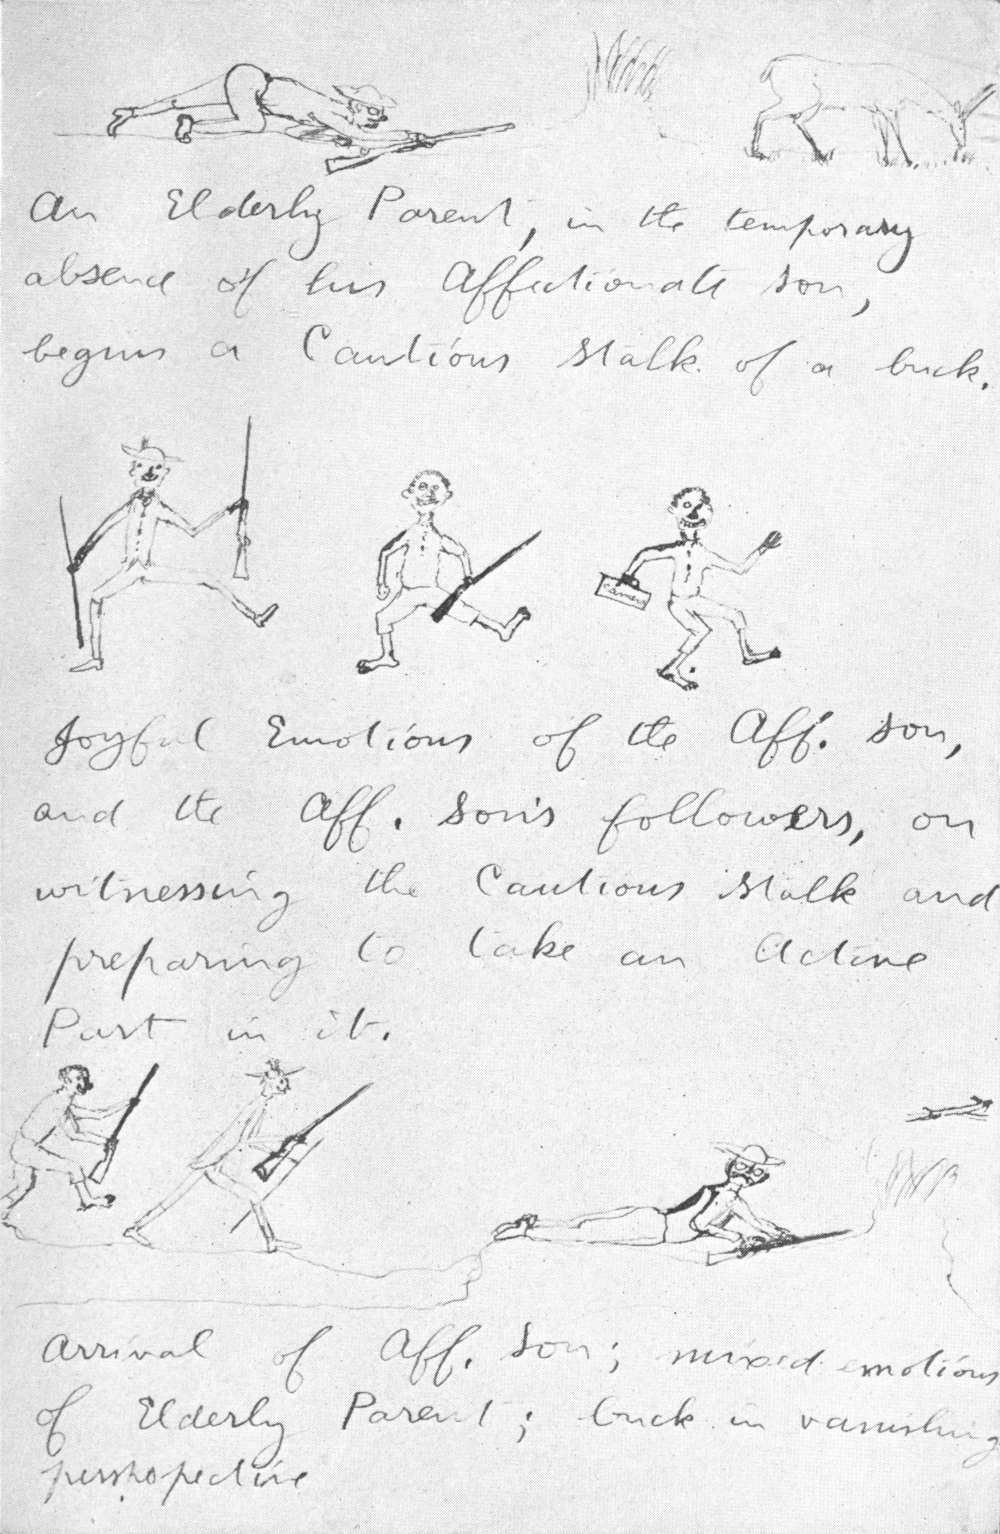 An Elderly Parent, in the temporary
absence of his Affectionate son,
begins a Cautious Stalk of a buck.
Camera
Joyful Emotions of the Aff. son,
and the Aff. Son's followers, on
witnessing the Cautious Stalk and
preparing to take an Active
Part in it.
Arrival of Aff. Son; mixed emotions
of Elderly Parent; buck in vanishing